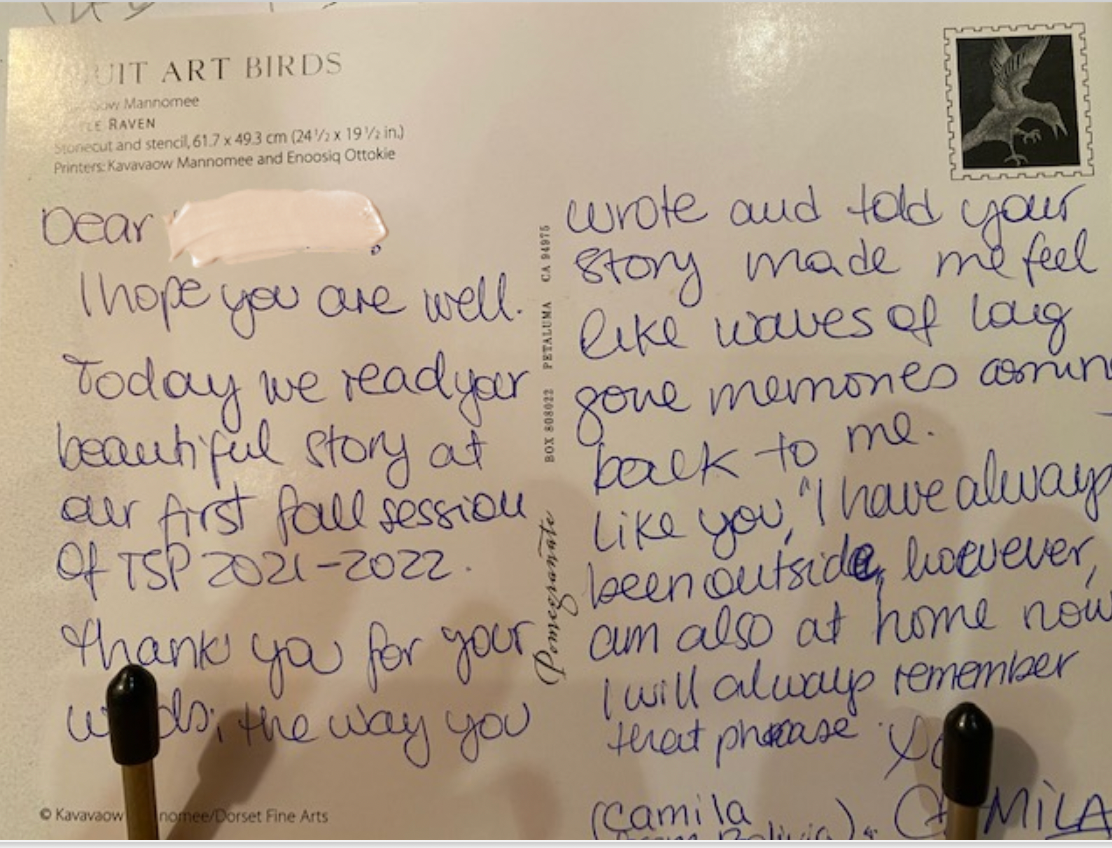 UIT ART BIRDS
Mannomee
LE RAVEN
Stonecut and stencil, 61.7 x 49.3 cm (24 1/2 x 19 1/2 in.)
Printers: Kavavaow Mannomee and Enoosiq Ottokie
Dear ,
I hope you are well.
Today we read your
beautiful story at
our first fall session
Of TSP 2021-2022.
Thank you for your
w ds; the way you
© Kavavaow nomee/Dorset Fine Arts
Pomegranate BOX 808022 PETALUMA CA 94975
wrote and told your
story made me feel
like waves of long
gone memories comin
back to me.
Like you, "I have always
been outside, however,
am also at home now
I will always remember
that phrase
(Camila
Bolivia). MILA